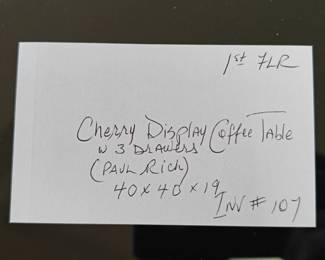 1st FLR
Cherry Display Coffee Table
W 3 DRAWERS
(PAUL RICH)
40 x 40 x 19
INV # 107